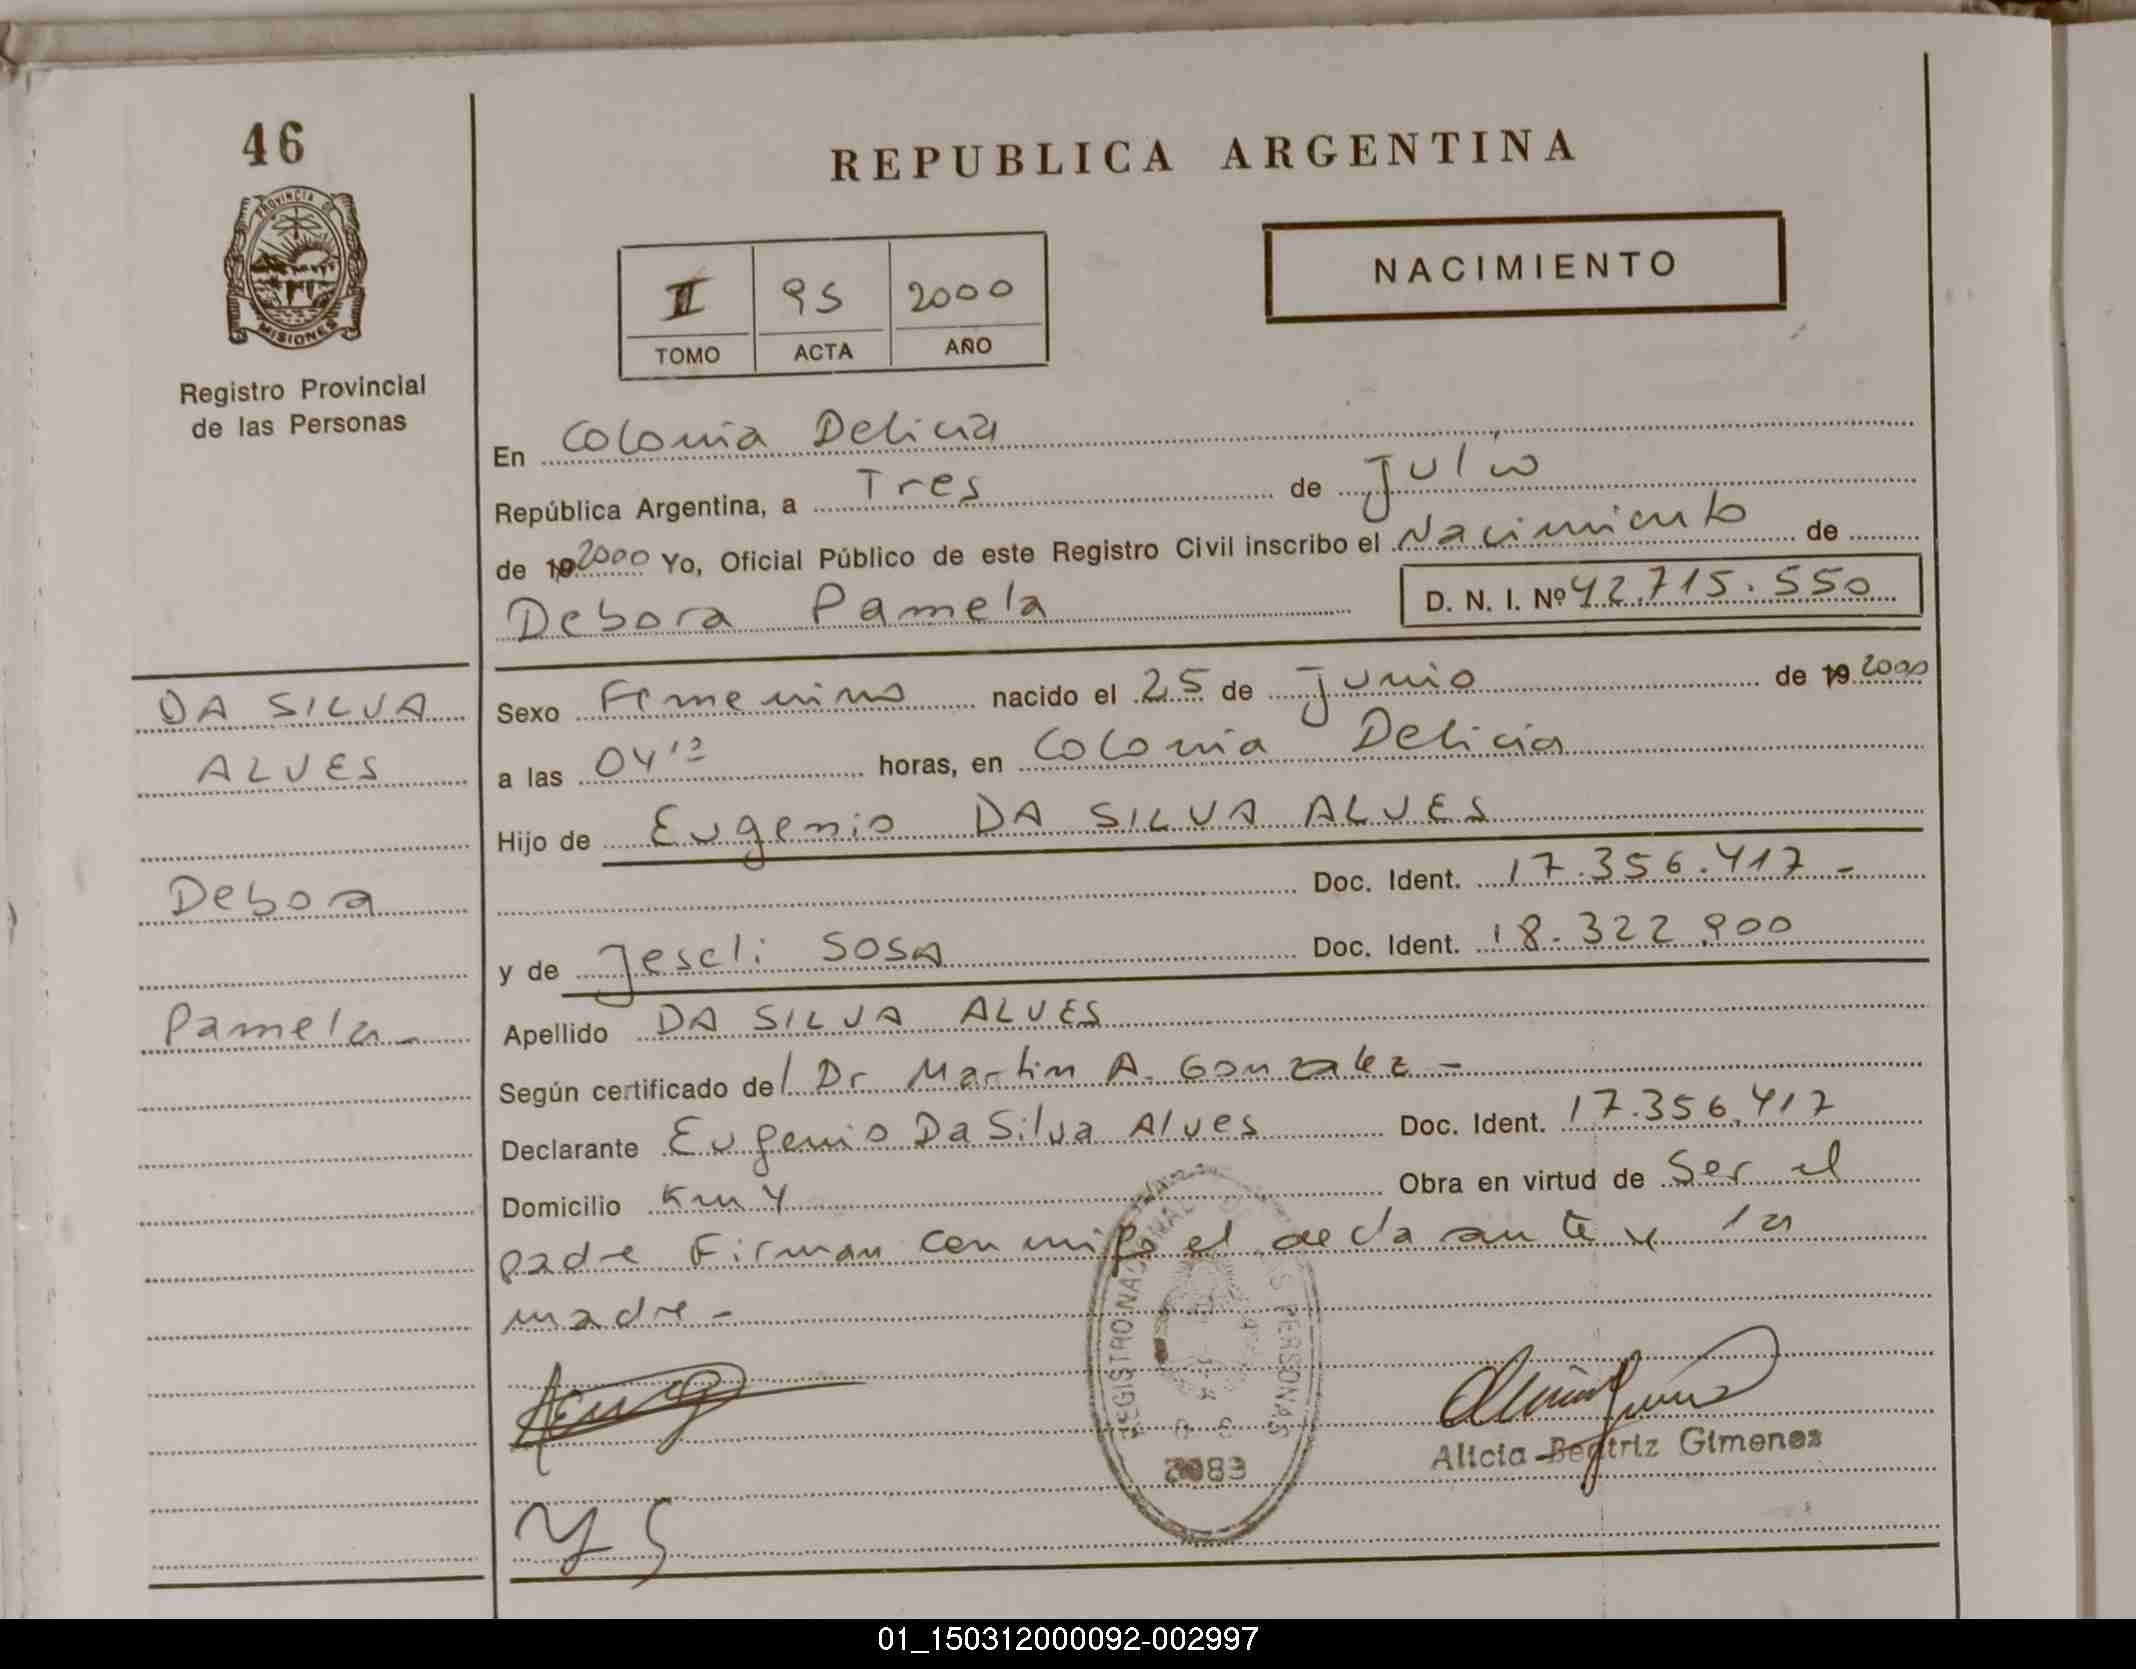 46
PROVINCIA DE
MISIONES
Registro Provincial
de las Personas
REPUBLICA ARGENTINA
NACIMIENTO
II 95 2000
TOMO ACTA AÑO
En Colonia Delicia
República Argentina, a Tres de Julio
de 19 2000 Yo, Oficial Público de este Registro Civil inscribo el Nacimiento de
Debora Pamela D. N. I. Nº 42.715.550
DA SILVA
ALVES
Debora
Pamela-
Sexo Femenino nacido el 25 de Junio de 19 2000
a las 04 horas, en Colonia Delicia
Hijo de Eugenio DA SILVA ALVES
Doc. Ident. 17.356.417-
y de Jescli SOSA Doc. Ident. 18.322.900
Apellido DA SILVA ALVES
Según certificado del Dr Martin A. Gonzalez-
Declarante Eugenio Da Silva Alves Doc. Ident. 17.356.417
Domicilio Km 4 Obra en virtud de Ser el
padre Firman conmigo el declarante y la
madre-
REGISTRO NACIONAL DE LAS PERSONAS
Alicia Beatriz Gimenez
Y S
01_150312000092-002997